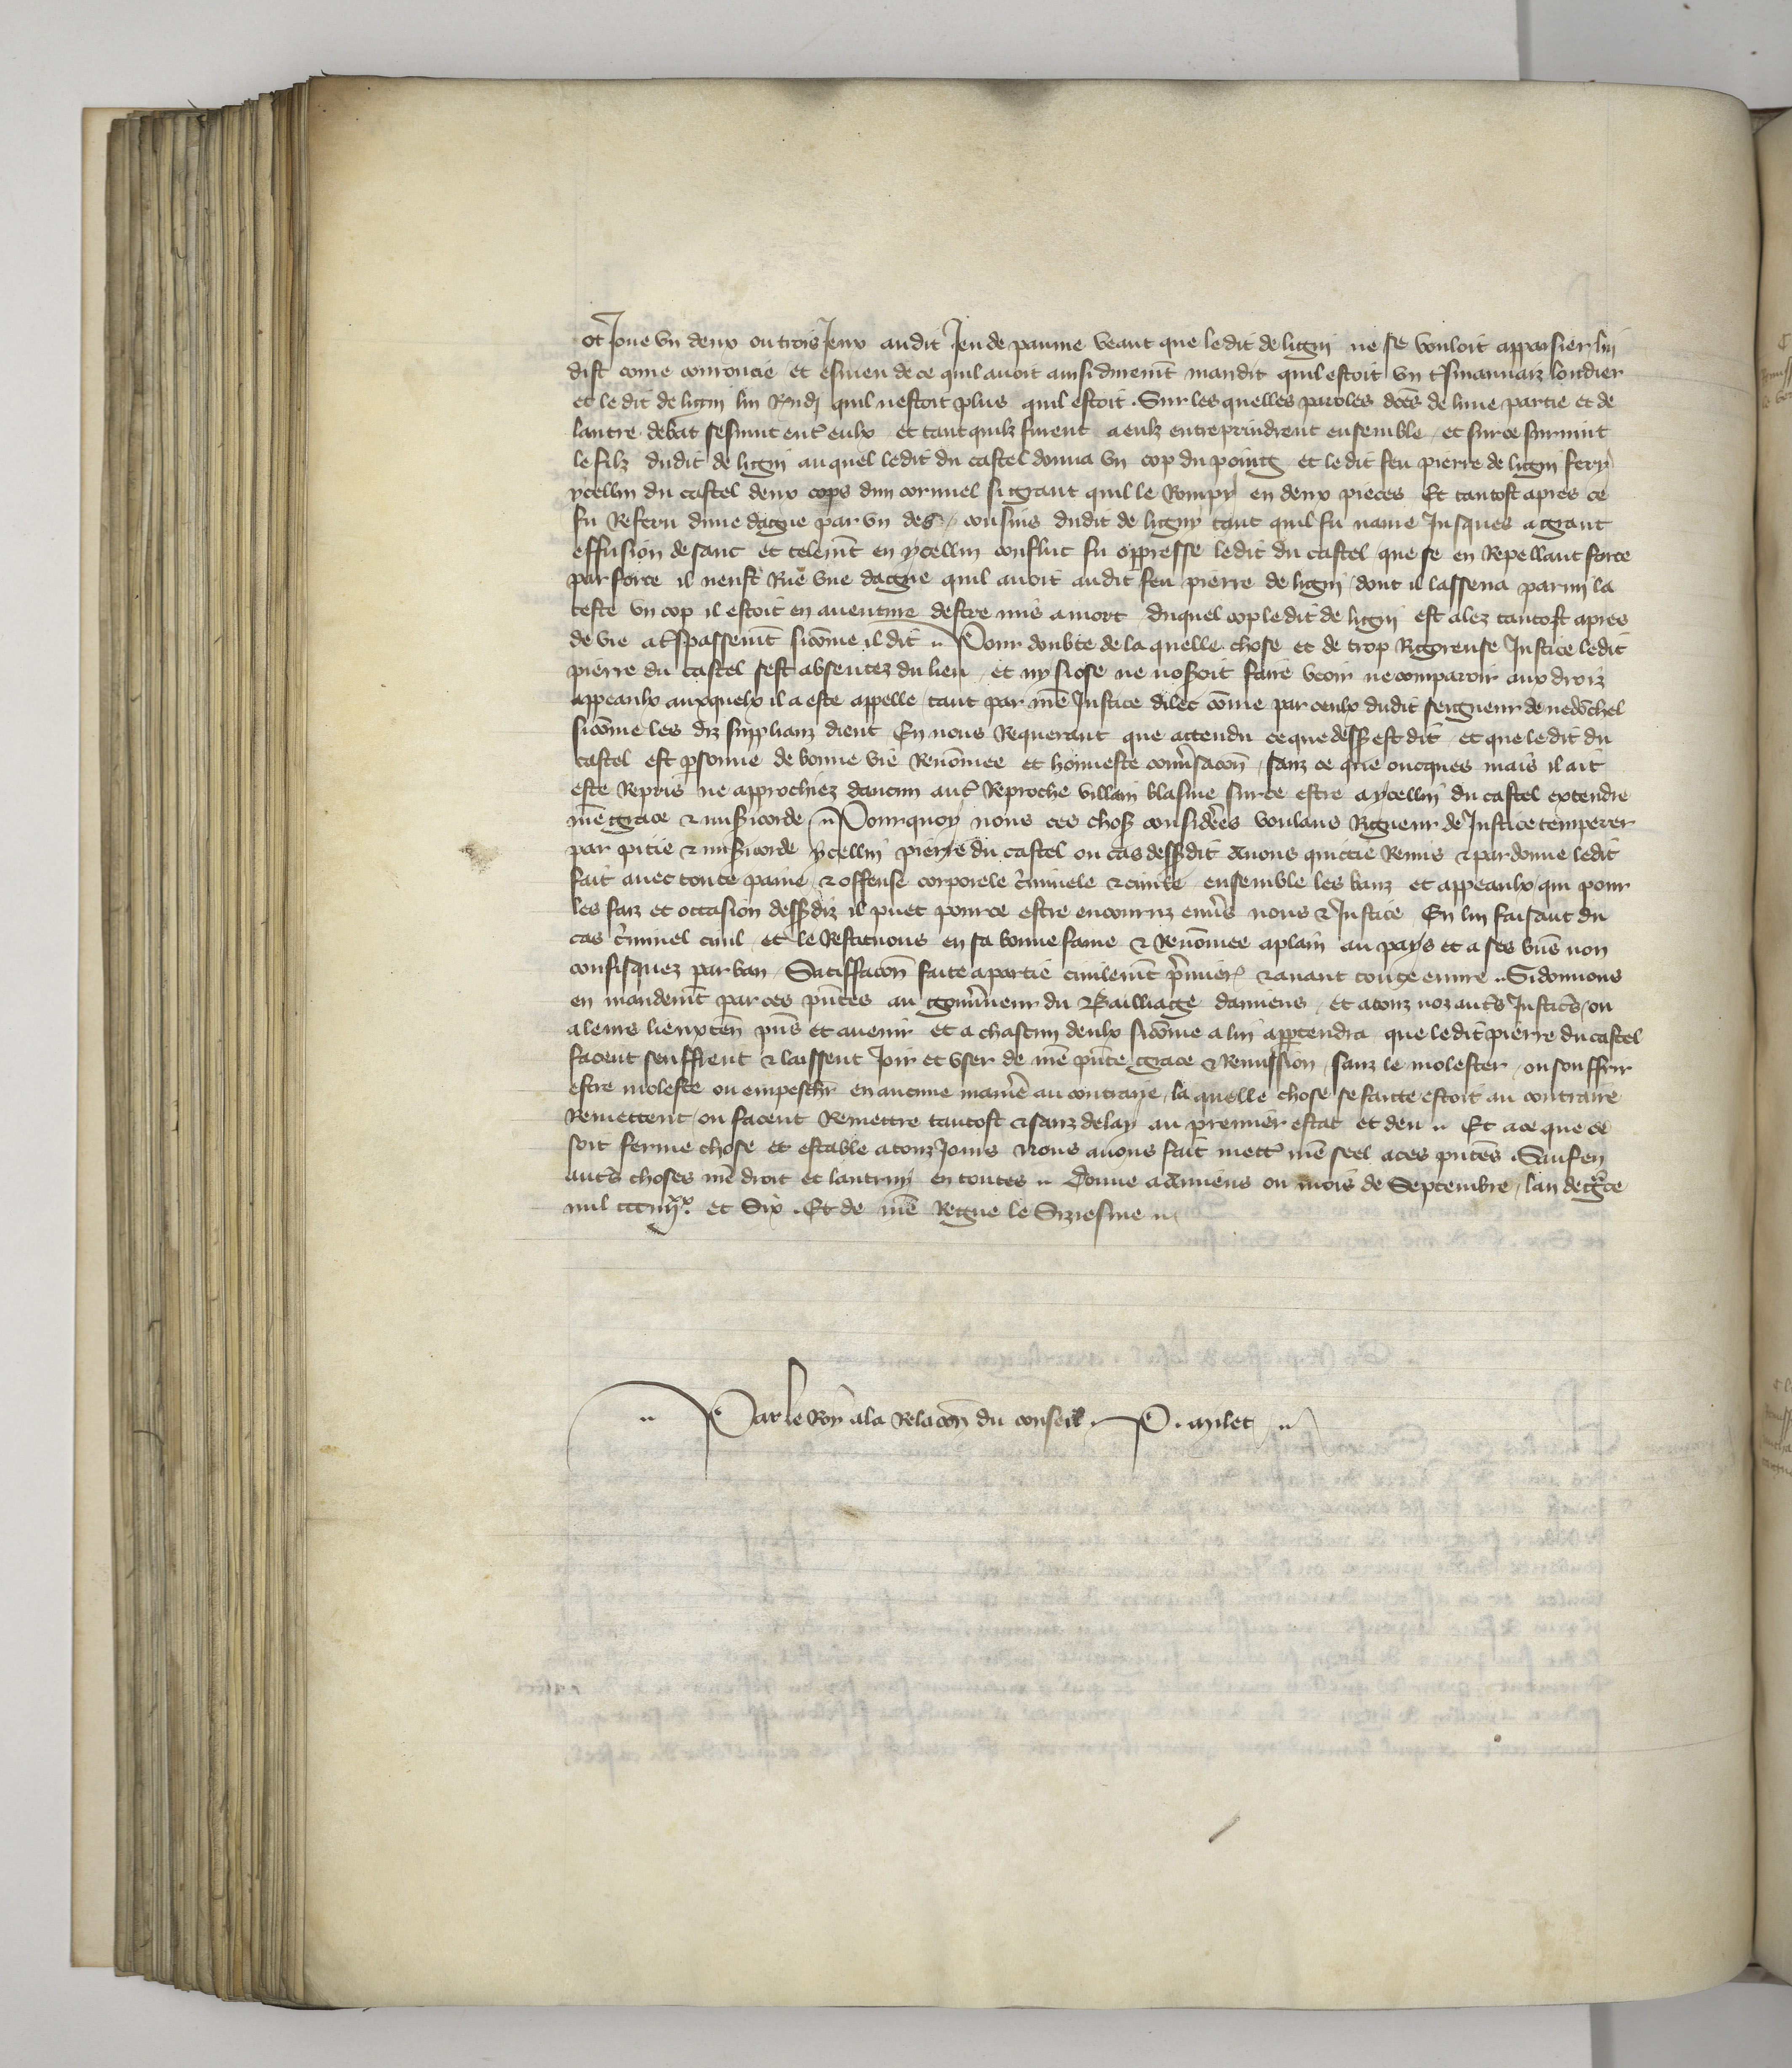 ot Joue vn deux ou trois Jeux audit Jeu de paume veant que ledit de ligny ne se vouloit appaisier lui
dist come couroucie et esmeu de ce quil auoit ainsi durem̃t maudit quil estoit vn tresmauuaiz loudier
et le dit de ligny lui Rñdj quil nestoit plus quil estoit . Sur les quelles paroles dc̃es de lune partie et de
lautre debat sesmut entr̃ eulx et tant quilz furent a eulz entreprindrent ensemble / et sur ce suruint
le filz dudit de ligny au quel ledit du castel donna vn cop du poing et ledit feu pierre de ligny fery
ycellui du castel deux cops dun cornuel si grant quil le Rompy en deux pieces Et tantost apres ce
fu Referu dune dague par vn des cousins dudit de ligny tant quil fu naure Jusques a grant
effusion de sanc et telem̃t en ycellui conflict fu oppresse ledit du castel que se en Repellant force
par force il neust Rue vne dague quil auoit audit feu pierre de ligny / dont il lassena parmi la
teste vn cop il estoit en auenture destre mis a mort duquel cop ledit de ligny est alez tantost apres
de vie a trespassem̃t sicõme il dit Pour doubte de la quelle chose et de trop Rigoreuse Justice ledit
pierre du castel sest absentez du lieu / et ny siose ne noseroit faire veoir ne comparoir aux droiz
appeaulx auxquelx il a este appelle tant par nr̃e Justice dilec cõme par ceulx dudit seigneur de nedõchel
sicõme les diz supplianz dient En nous Requerant que attendu ce que dess̃ est dit et que ledit du
castel est p̃sonne de bonne vie Renõmee et honneste conũsacõn / sanz ce que oncques mais il ait
este Repris ne approchiez daucun autr̃ Reproche villain blasme sur ce estre a ycellui du castel extendre
nr̃e grace & mis̃icorde Pourquoy nous ces chos̃ considẽes voulans Rigueur de Justice temperer
par pitie & mis̃icorde ycellui pierre du castel ou cas dess̃dit Auons quictie Remis & pardonne ledit
fait auec toute paine & offense corporele c̃iminele & ciuile ensemble les banz et appeaulx qui pour
les faiz et occasion dess̃diz il puet pour ce estre encouruz enũs nous & Justice En lui faisant du
cas c̃iminel ciuil et le Restituons en sa bonne fame & Renõmee aplain au pays et a ses biẽs non
confisquez par ban / Satisfacõn faite a partie ciuilem̃t p̃mier & auant toute euure . Si donnons
en mandem̃t par ces p̃ntes au gouũneur du Bailliage damiens / et a touz noz autr̃s Justic̃s / ou
a leurs lieuxteñ p̃ns et auenir et a chascun deulx sicõme a lui app̃tendra que ledit pierre du castel
facent seuffrent & laissent Joir et vser de nr̃e p̃nte grace & Remission / sanz le molester ou souffrir
estre moleste ou empeschr̃ en aucune manr̃e au contraire / la quelle chose se faicte estoit au contraire
Remettent / ou facent Remettre tantost & sanz delay au premier estat et deu Et ace que ce
soit ferme chose et estable a touz Jours Nous auons fait mettr̃ nr̃e seel aces p̃ntes . Sauf en
autr̃s choses nr̃e droit et lautruy en toutes Donne a Amiens ou mois de Septembre / lan de gr̃ce
mil ccciiijxx. et Six . Et de nr̃e Regne le Siziesme
Par le Roy ala Relacõn du conseil . P . Milet